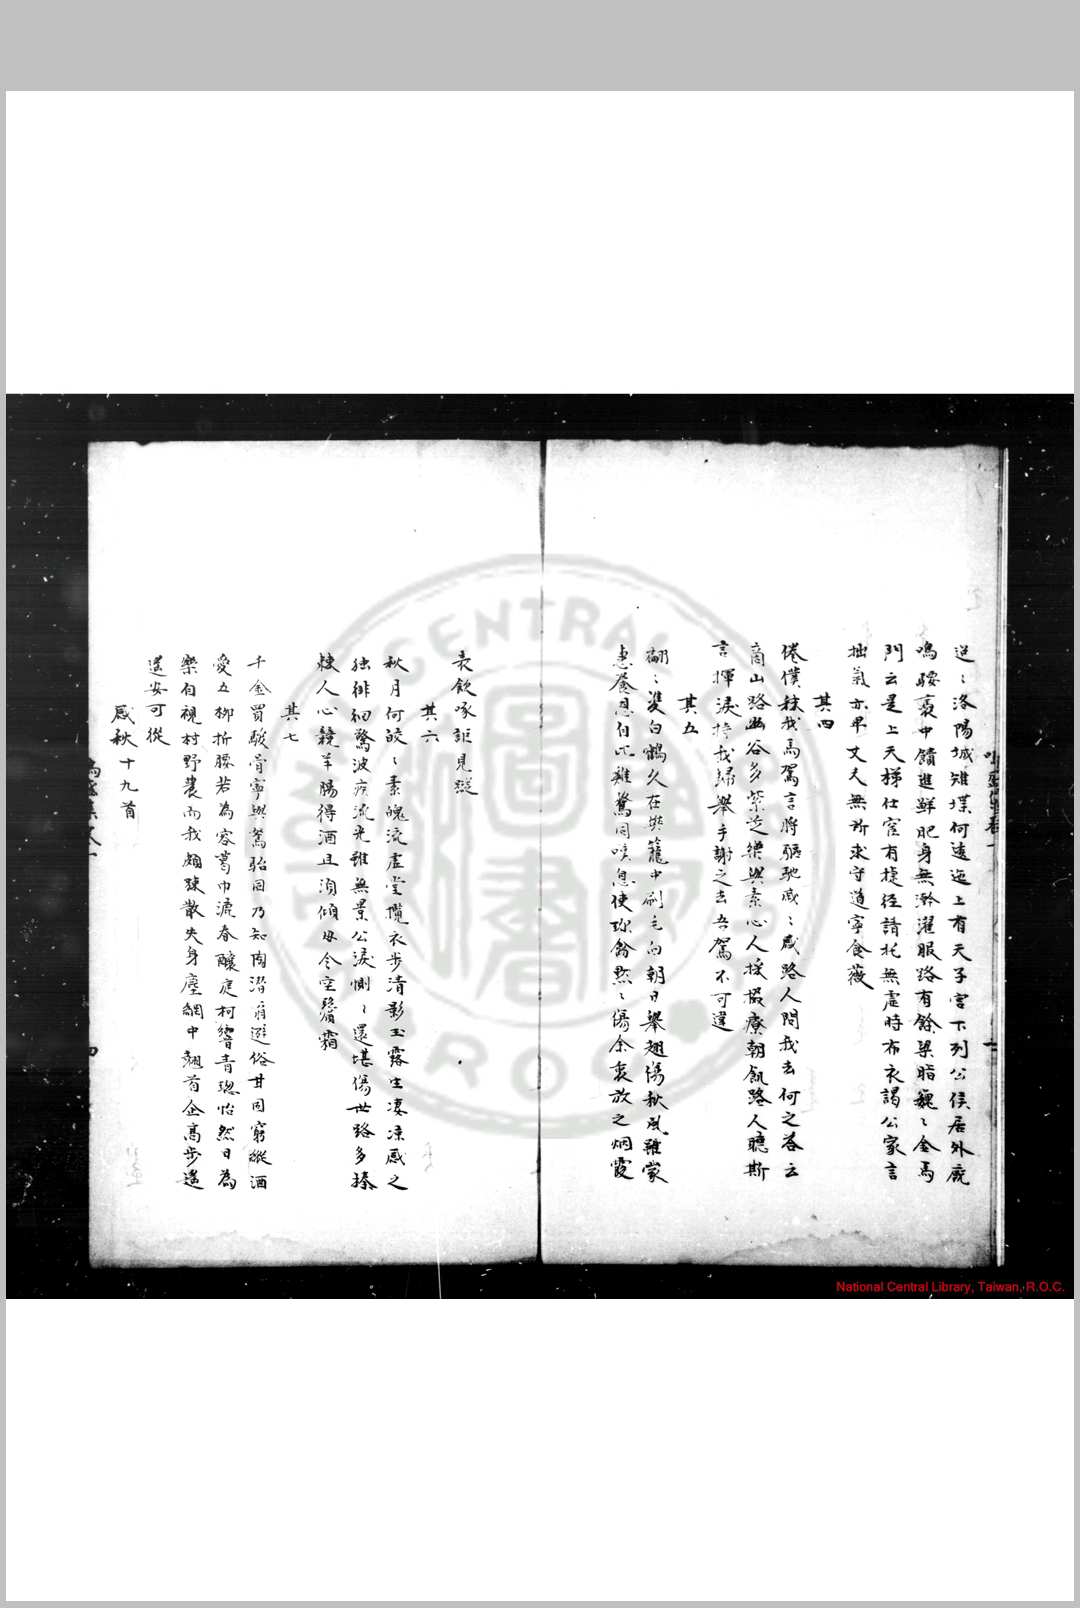 迢〻洛陽城雉堞何逶迤上有天子宮下列公侯居外廐
鳴騕褭中饋進鮮肥身無澣濯服路有餘粱脂巍〻金馬
門云是上天梯仕宦有捷徑請托無虛時布衣謁公家言
拙氣亦卑丈夫無所求守道寧食薇
其四
倦僕秣我馬駕言將驅馳戚〻戚路人問我去何之答云
商山路幽谷多紫芝樂與素心人採掇療朝飢路人聽斯
言揮淚持我歸舉手謝之去吾駕不可違
其五
翩〻雙白鶴久在樊籠中刷毛向朝日舉翅傷秋風雖蒙
惠養恩自比雞鶩同嘆息使
傷余衷放之烟霞
表飲啄詎見蹤
其六
秋月何皎〻素魄流虛堂攬衣步清影玉露生凄凉感之
独徘徊驚波疾流光雖無景公淚惻〻還堪傷世路多榛
棘人心競羊腸得酒且須傾毋令空鬢霜
其七
千金買駿骨寧與駑駘同乃知陶潛
避俗甘固窮縱酒
愛五柳折腰若為容葛巾漉春釀庭柯響青璁怡然日為
樂自視村野農而我
疎散失身塵網中翹首企高步遙
遙安可從
感秋十九首